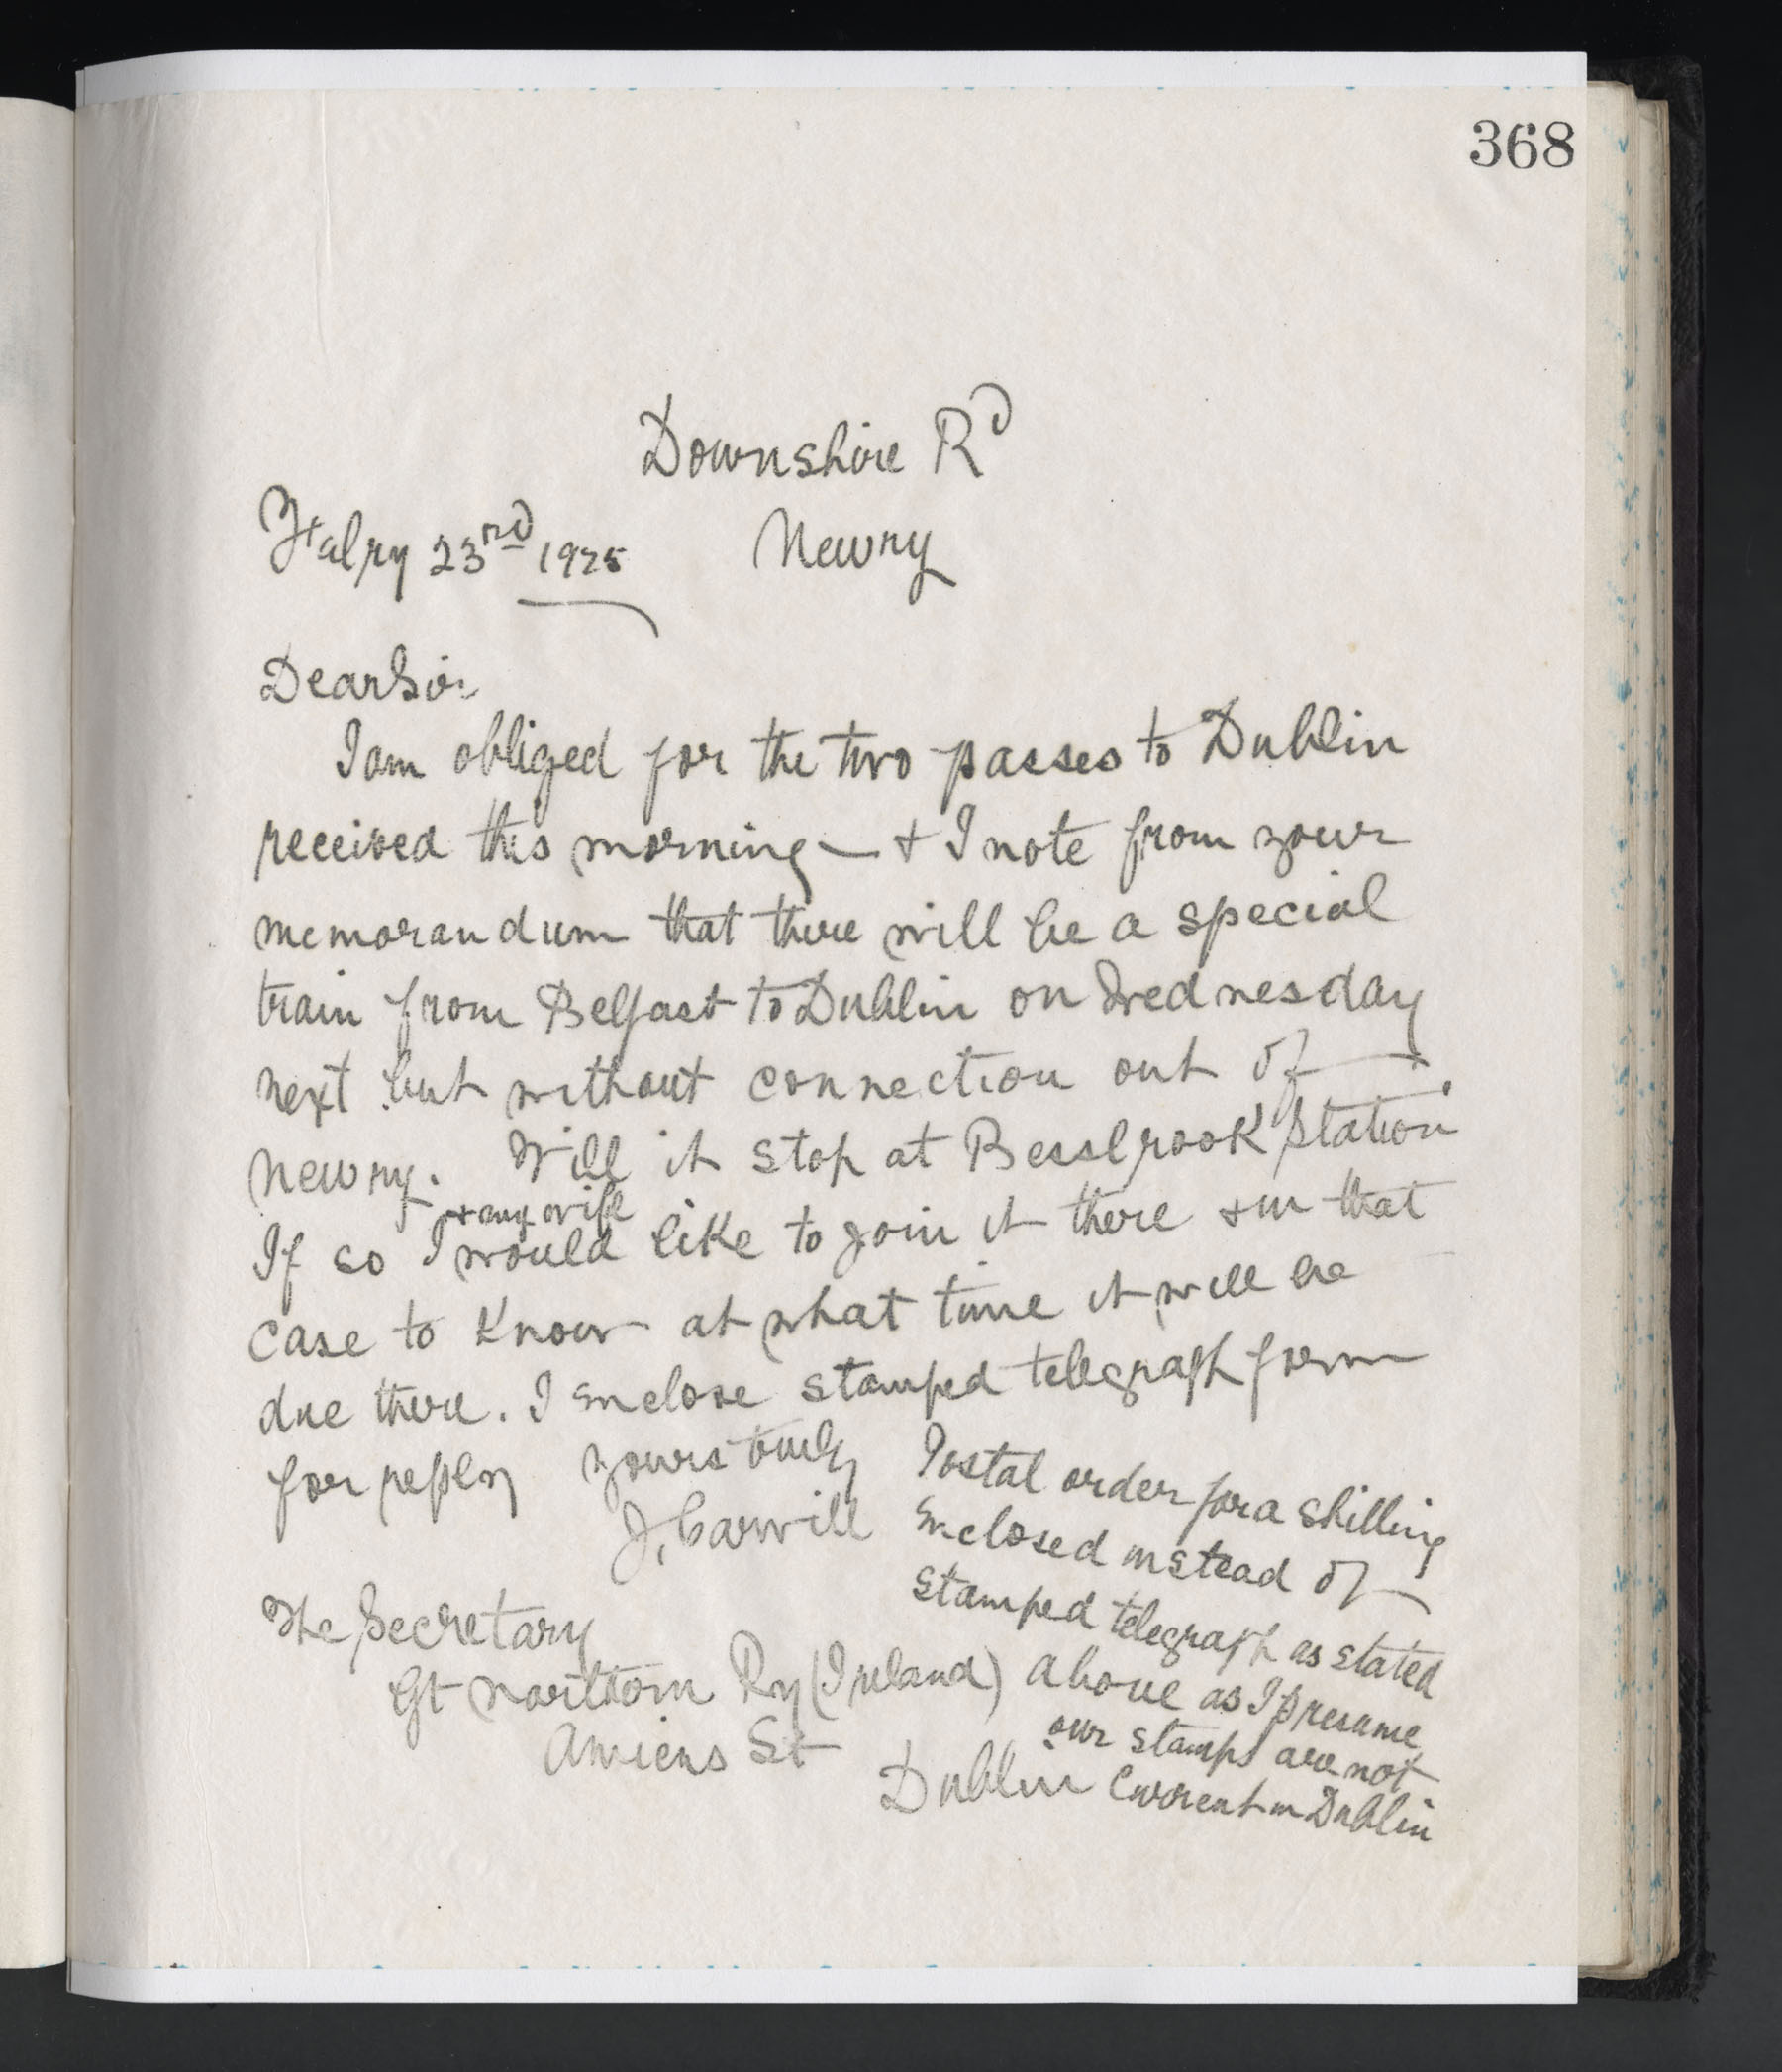 368
Downshire Rd
Febry 23rd 1925
Newry
Dear Sir
I am obliged for the two passes to Dublin
received this morning — + I note from your
memorandum that there will be a special
train from Belfast to Dublin on Wednesday
next but without connection out of
Newry. Will it stop at Bessbrook Station
+ my wife
If so I would like to join it there + in that
case to know at what time it will be
due there. I enclose stamped telegraph form
for reply yours truly
J. Carvill
The Secretary
Gt Northern Ry (Ireland)
Amiens St
Dublin
Postal order for a shilling
enclosed instead of
stamped telegraph as stated
above as I presume
our stamps are not
current in Dublin